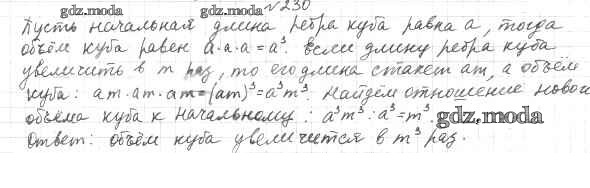 gdz.moda gdz.moda № 230
Пусть начальная длина ребра куба равна a, тогда
объём куба равен a·a·a = a³. Если длину ребра куба
увеличить в m раз, то его длина станет am, а объём
куба: am·am·am = (am)³ = a³m³. Найдём отношение нового
объёма куба к начальному: a³m³ : a³ = m³. gdz.moda
Ответ: объём куба увеличится в m³ раз.